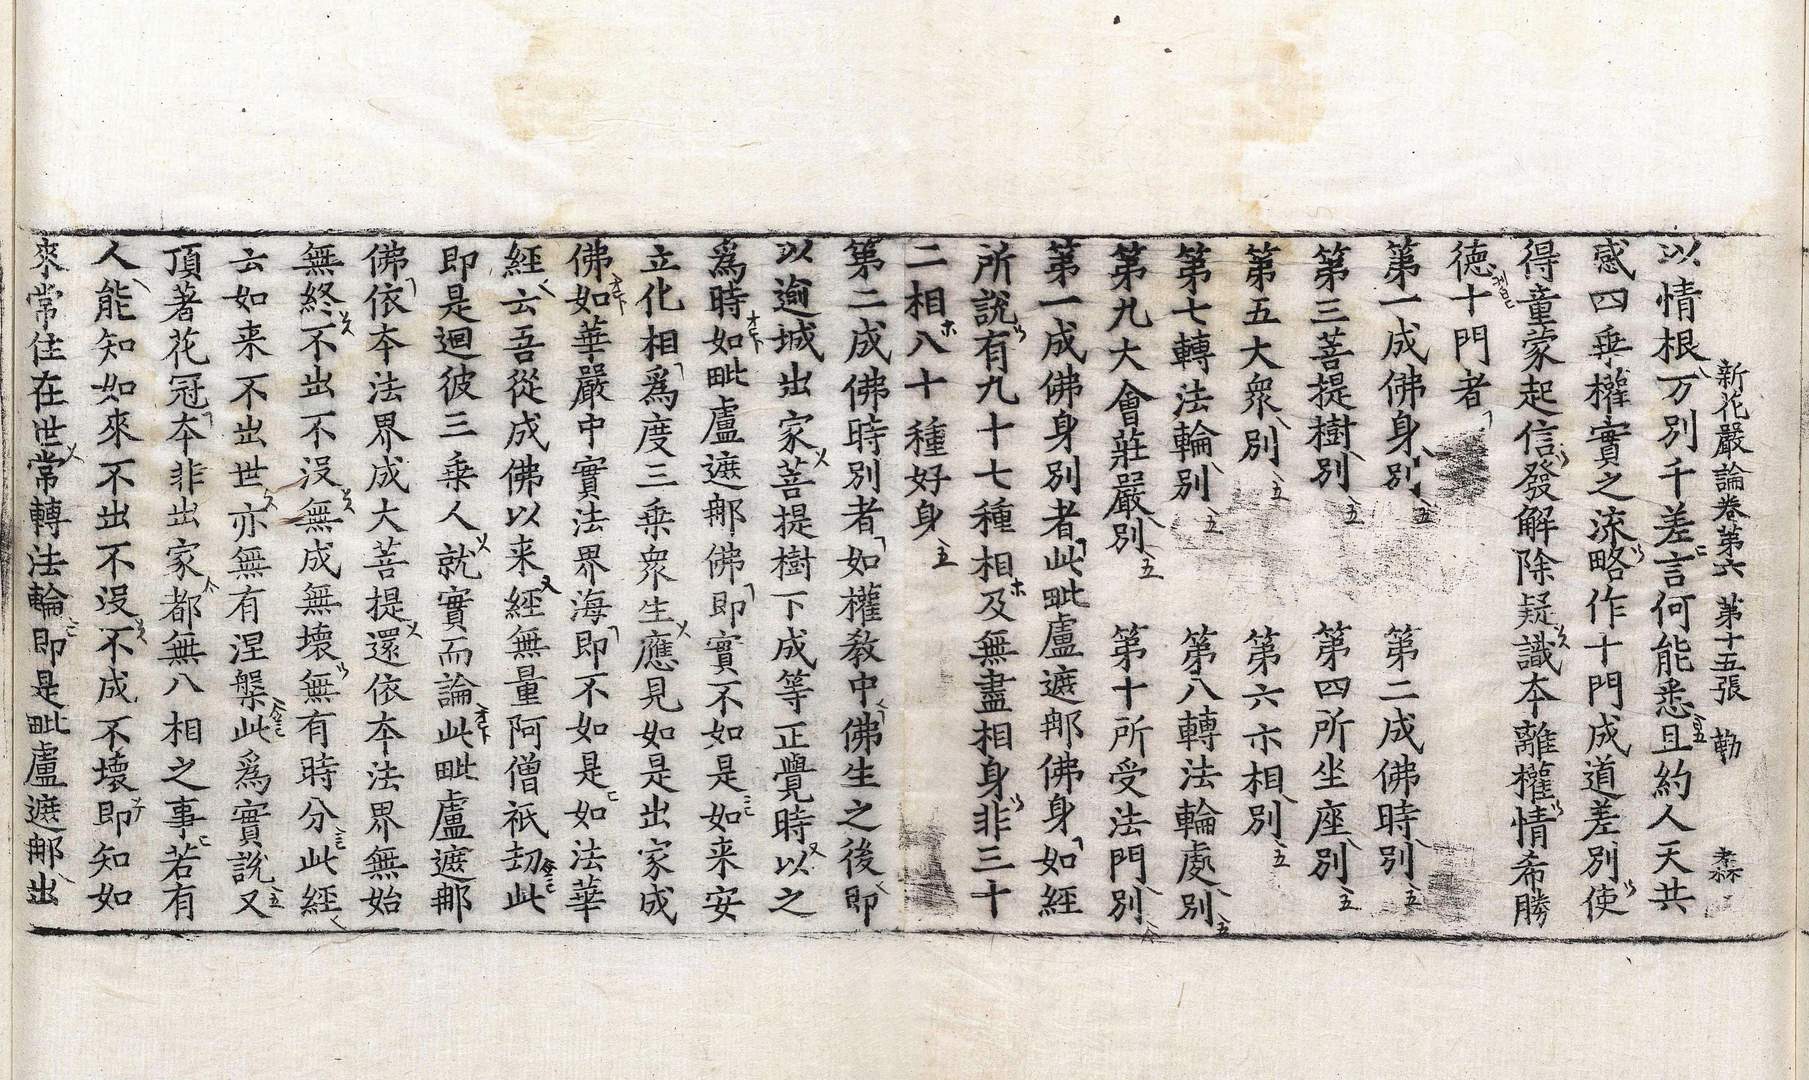 新花嚴論卷第六　第十五張　勒
以情根万別千差言何能悉且約人天共
感四乗權實之流略作十門成道差別使
得童蒙起信發解除疑識本離權情希勝
德十門者
第一成佛身別　第二成佛時別
第三菩提樹別　第四所坐座別
第五大衆別　第六示相別
第七轉法輪別　第八轉法輪處別
第九大會莊嚴別　第十所受法門別
第一成佛身別者此毗盧遮那佛身如經
所說有九十七種相及無盡相身非三十
二相八十種好身
第二成佛時別者如權教中佛生之後即
以逾城出家菩提樹下成等正覺時以之
爲時如毗盧遮那佛即實不如是如来安
立化相爲度三乗衆生應見如是出家成
佛如華嚴中實法界海即不如是如法華
經云吾從成佛以来經無量阿僧祇劫此
即是迴彼三乗人就實而論此毗盧遮那
佛依本法界成大菩提還依本法界無始
無終不出不没無成無壞無有時分此經
云如来不出世亦無有涅槃此爲實說又
頂著花冠本非出家都無八相之事若有
人能知如來不出不没不成不壞即知如
來常住在世常轉法輪即是毗盧遮那出